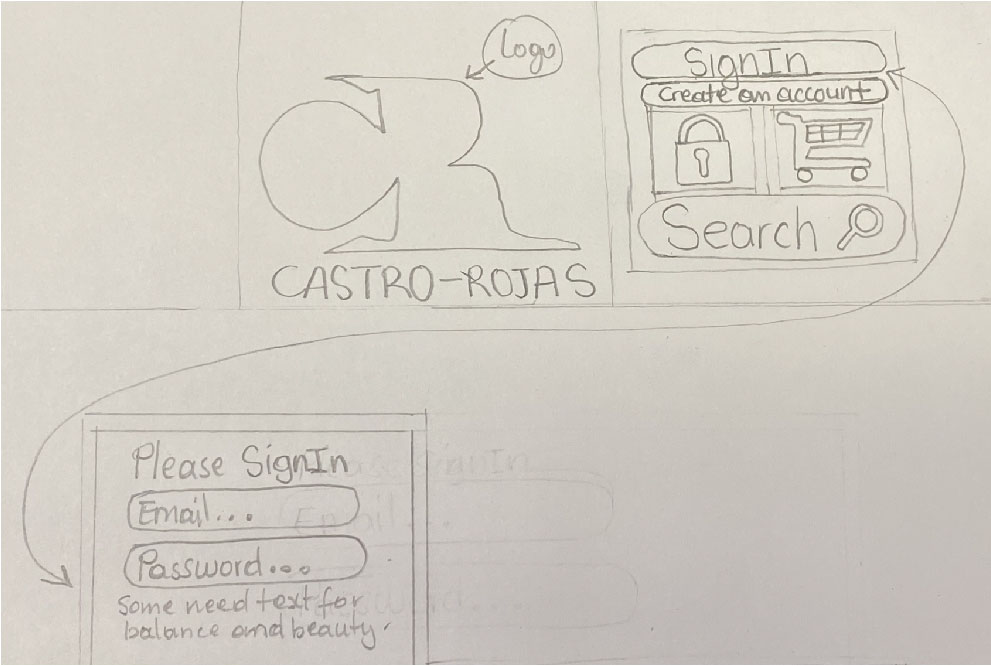 Logo
CASTRO-ROJAS
SignIn
Create an account
Search
Please SignIn
Email...
Password...
Some need text for
balance and beauty.